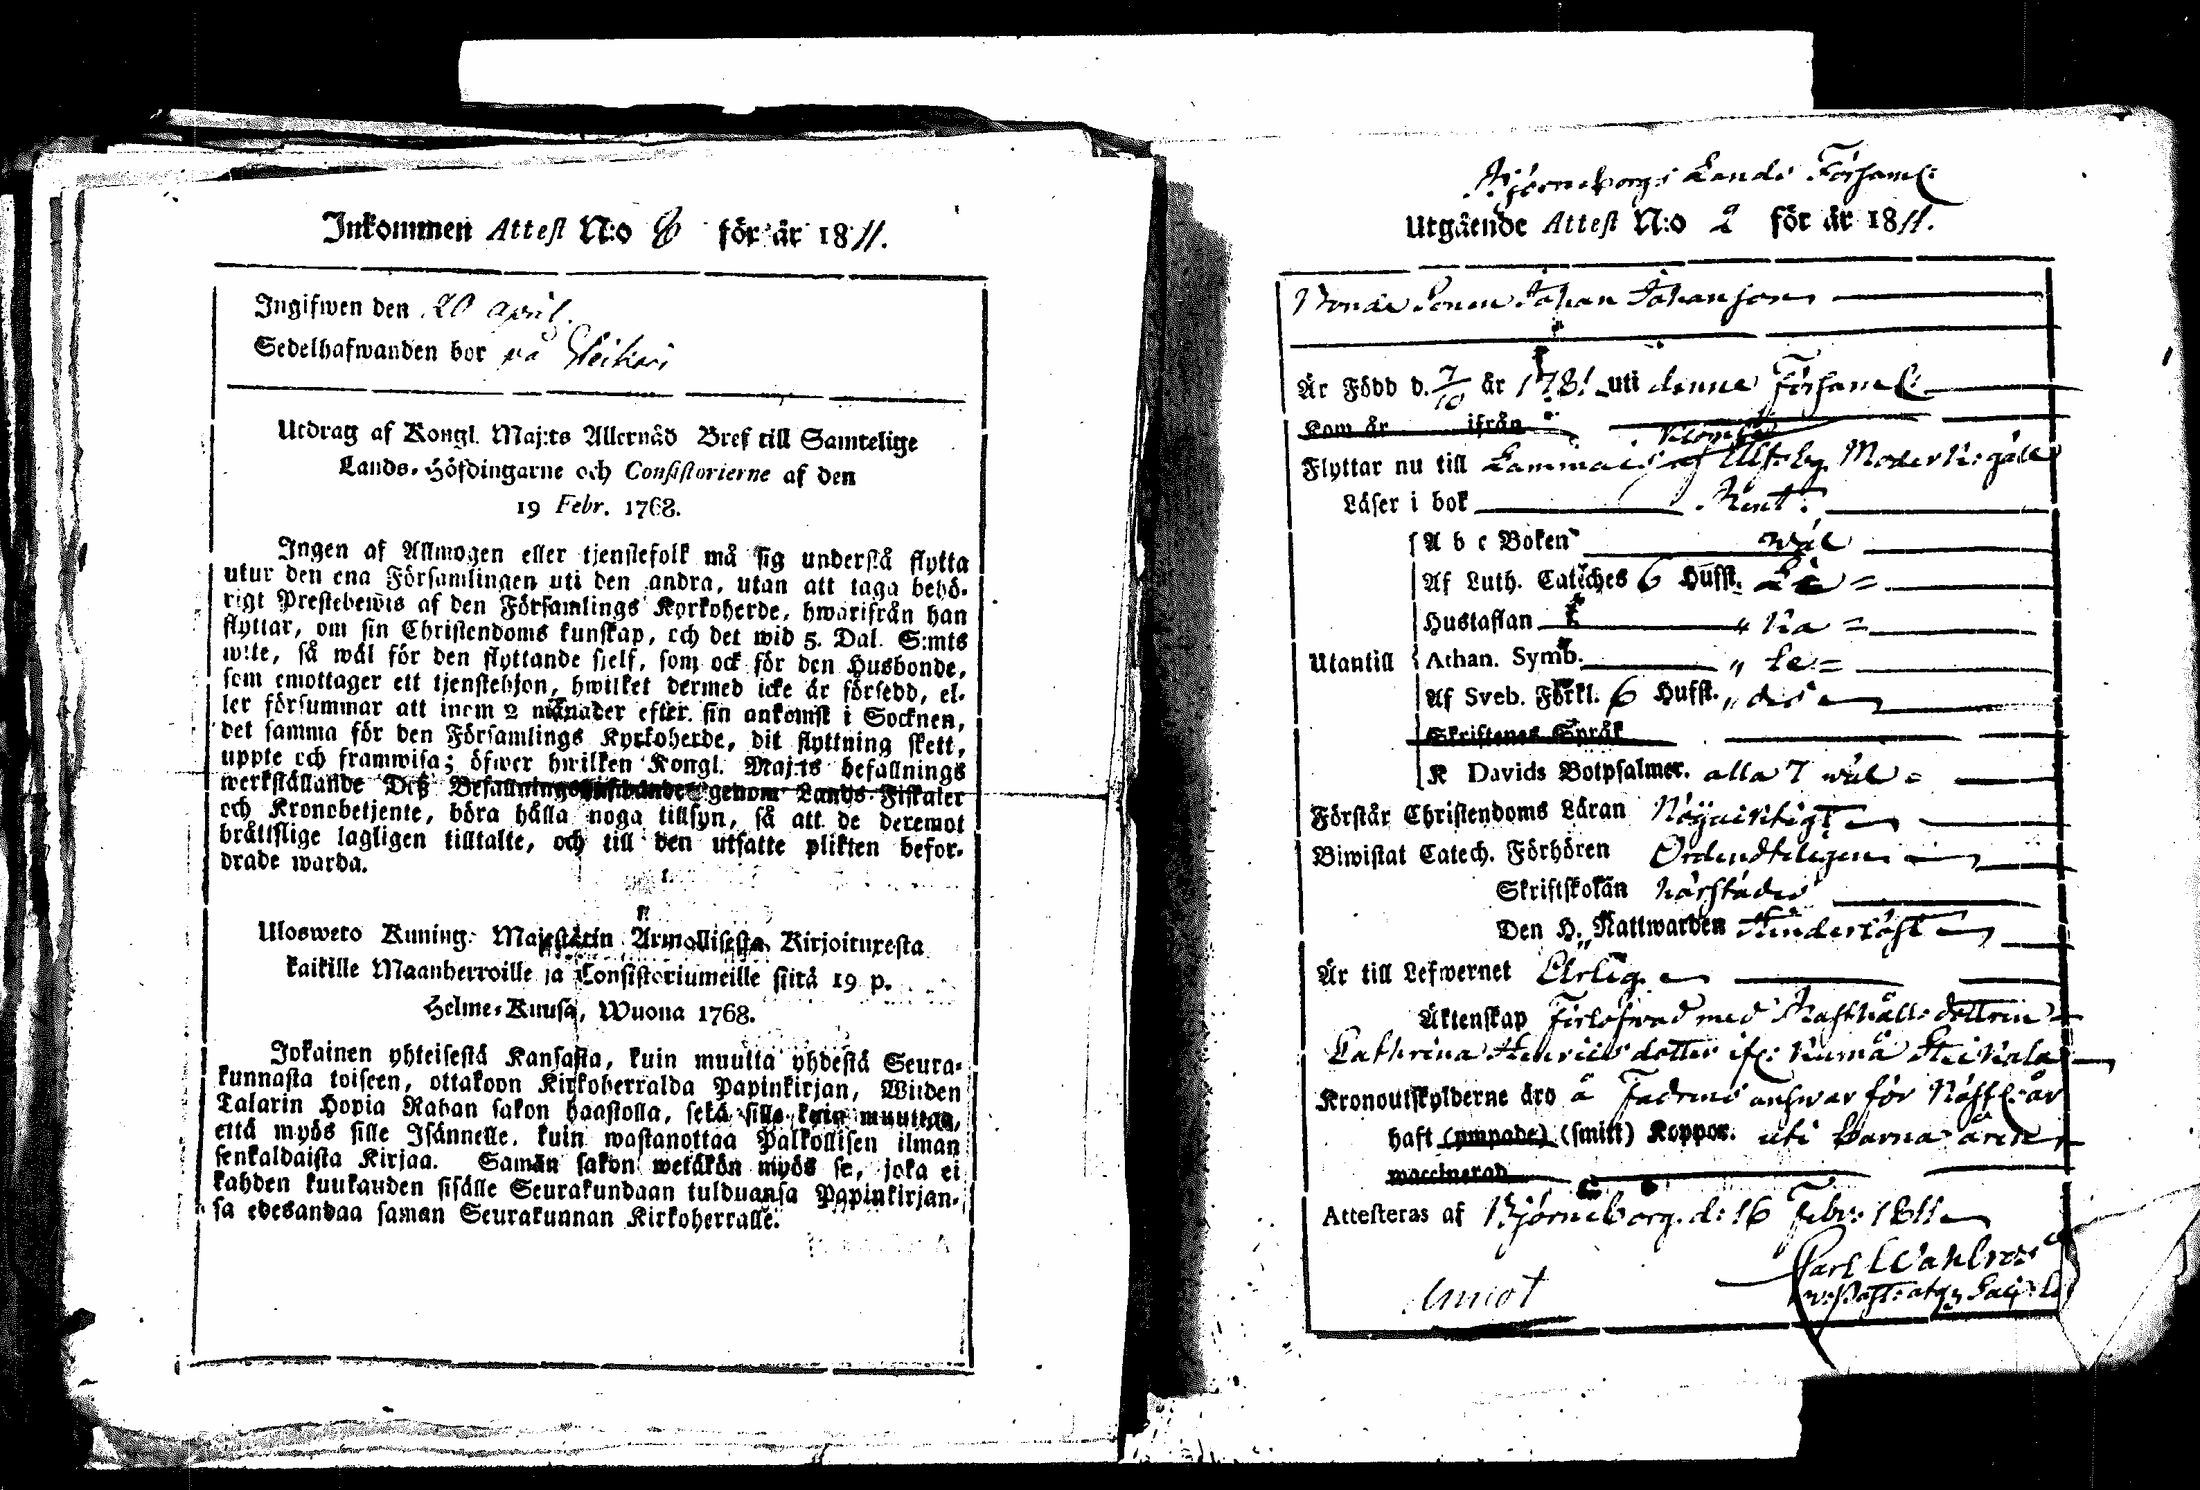 Inkommen Attest N:o 8 för år 1811.
Ingifwen den 20 april.
Sedelhafwanden bor på
Utdrag af Kongl. Maj:ts Allernåd Bref till Samtelige
Lands-Höfdingarne och Consistorierne af den
19 Febr. 1768.
Ingen af Allmogen eller tjenstefolk må sig understå flytta
utur den ena Församlingen uti den andra, utan att taga behö-
rigt Prestebewis af den Församlings Kyrkoherde, hwarifrån han
flyttar, om sin Christendoms kunskap, och det wid 5. Dal. S:mts
wite, så wäl för den flyttande sjelf, som ock för den Husbonde,
som emottager ett tjenstehjon, hwilket dermed icke är försedd, el-
ler försummar att inom 2 månader efter sin ankomst i Socknen,
det samma för den Församlings Kyrkoherde, dit flyttning skett,
uppte och framwisa; öfwer hwilken Kongl. Maj:ts befallnings
werkställande Deß Befallningshafwande genom Lands-Fiskaler
och Kronobetjente, böra hålla noga tillsyn, så att de deremot
bråttslige lagligen tilltalte, och till den utsatte plikten befor-
drade warda.
Ulosweto Kuning: Majestätin Armollisesta Kirjoituxesta
kaikille Maanherroille ja Consistoriumeille siitä 19 p.
Helme-Kuusa, Wuona 1768.
Jokainen yhteisestä Kansasta, kuin muutta yhdestä Seura-
kunnasta toiseen, ottakoon Kirkoherralda Papinkirjan, Wiiden
Talarin Hopia Rahan sakon haastolla, sekä sille kuin muuttaa,
että myös sille Isännelle, kuin wastanottaa Palkollisen ilman
senkaldaista Kirjaa. Samän sakon wetäkön myös se, joka ei
kahden kuukauden sisälle Seurakundaan tulduansa Papinkirjan-
sa edesandaa saman Seurakunnan Kirkoherralle.
Björneborgs Lands Församl:
Utgående Attest N:o 2 för år 1811.
Bonde Sonen Johan Johansson
Är Född d. 7/10 år 1781 uti denna Församl:
Kom år ifrån
Flyttar nu till Lammais af Ulfsby Moder K: gäll
Läser i bok Rent.
A b c Boken wäl
Af Luth. Catéches 6 Hufst. Li =
Hustaflan " ka =
Utantill Athan. Symb. " le =
Af Sveb. Förkl. 6 Hufst. " des
Skriftenes Språk
K Davids Botpsalmer. alla 7 wäl =
Förstår Christendoms Läran Nöjaktigt
Biwistat Catech. Förhören Ordenteligen
Skriftskolan härstädes
Den H. Nattwarden
Är till Lefwernet Ärlig
Äktenskap Förlofwad med Rusthålls dottren
Cathrina Henricsdotter
Kronoutskylderne äro å Fadrens answar för Nästl: år
haft (ympade) (smitt) Koppor. uti barna åren
waccinerad
Attesteras af Björneborg d: 16 Febr: 1811
Carl Wahlroos